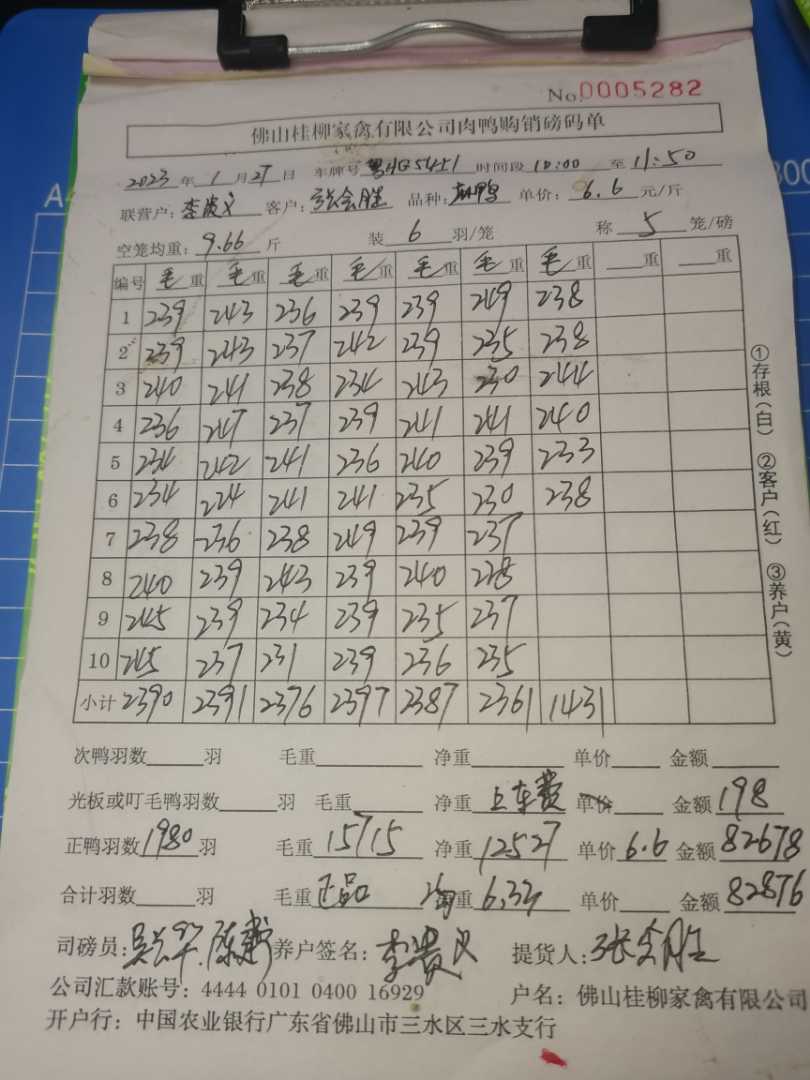 No.0005282
佛山桂柳家禽有限公司肉鸭购销磅码单
2023 年 1 月 27 日 车牌号 时间段 10:00 至 11:50
联营户: 李贵义 客户: 张会胜 品种: 麻鸭 单价: 6.6 元/斤
空笼均重: 9.66 斤 装 6 羽/笼 称 5 笼/磅
编号 毛重 毛重 毛重 毛重 毛重 毛重 毛重 重 重
1 239 243 236 239 239 249 238
2 239 243 237 242 239 235 238
3 240 241 238 234 243 230 244
4 236 247 237 239 241 241 240
5 234 242 241 236 240 239 233
6 234 224 241 241 235 230 238
7 238 236 238 249 239 237
8 240 239 243 239 240 238
9 245 239 234 239 235 237
10 245 237 231 239 236 235
小计 2390 2391 2376 2397 2387 2361 1431
次鸭羽数 羽 毛重 净重 单价 金额
光板或叮毛鸭羽数 羽 毛重 净重 上车费 单价 金额 198
正鸭羽数 1980 羽 毛重 15715 净重 12527 单价 6.6 金额 82678
合计羽数 羽 毛重 正品 重 6.33 单价 金额 82876
司磅员: 养户签名: 李贵义 提货人: 张会胜
公司汇款账号: 4444 0101 0400 16929 户名: 佛山桂柳家禽有限公司
开户行: 中国农业银行广东省佛山市三水区三水支行
①存根(白) ②客户(红) ③养户(黄)